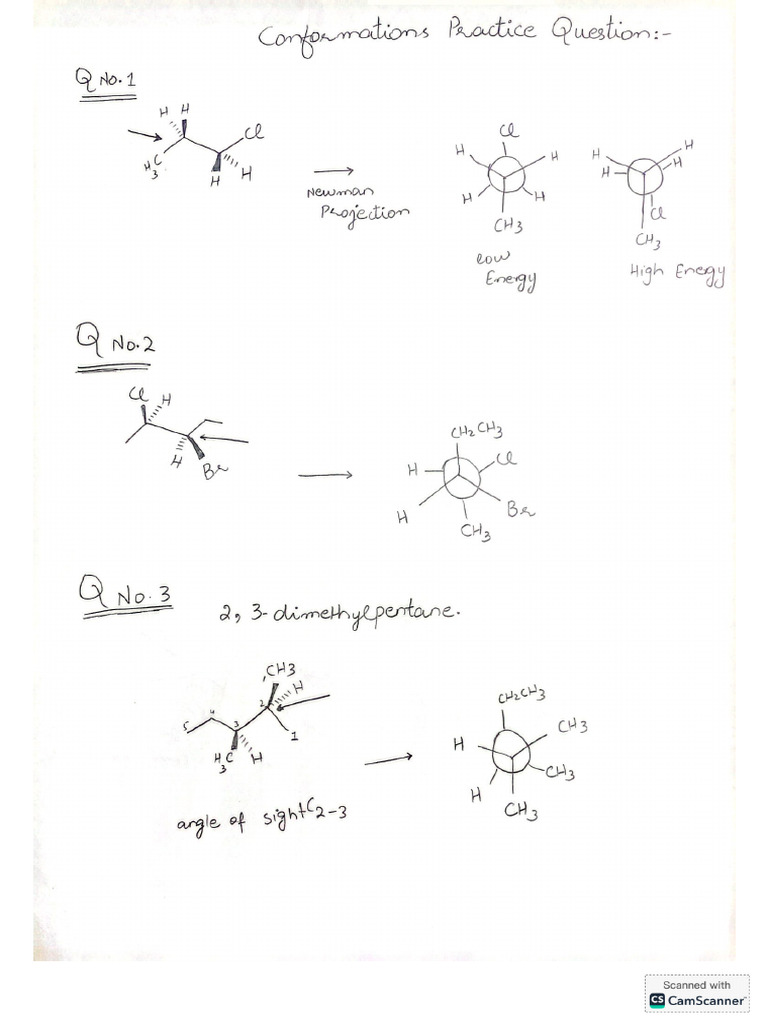 Conformations Practice Question:-
Q No.1
H H
Cl
H3C
H H
Newman
Projection
Cl
H H
H H
CH3
low
Energy
H H
H H
Cl
CH3
High Enegy
Q No.2
Cl H
H Br
CH2 CH3
H Cl
H Br
CH3
Q No. 3
2, 3-dimethylpentane.
CH3
H
5 4 3 2 1
H3C H
CH2CH3
H CH3
H CH3
CH3
angle of sight C2-3
Scanned with
CS CamScanner